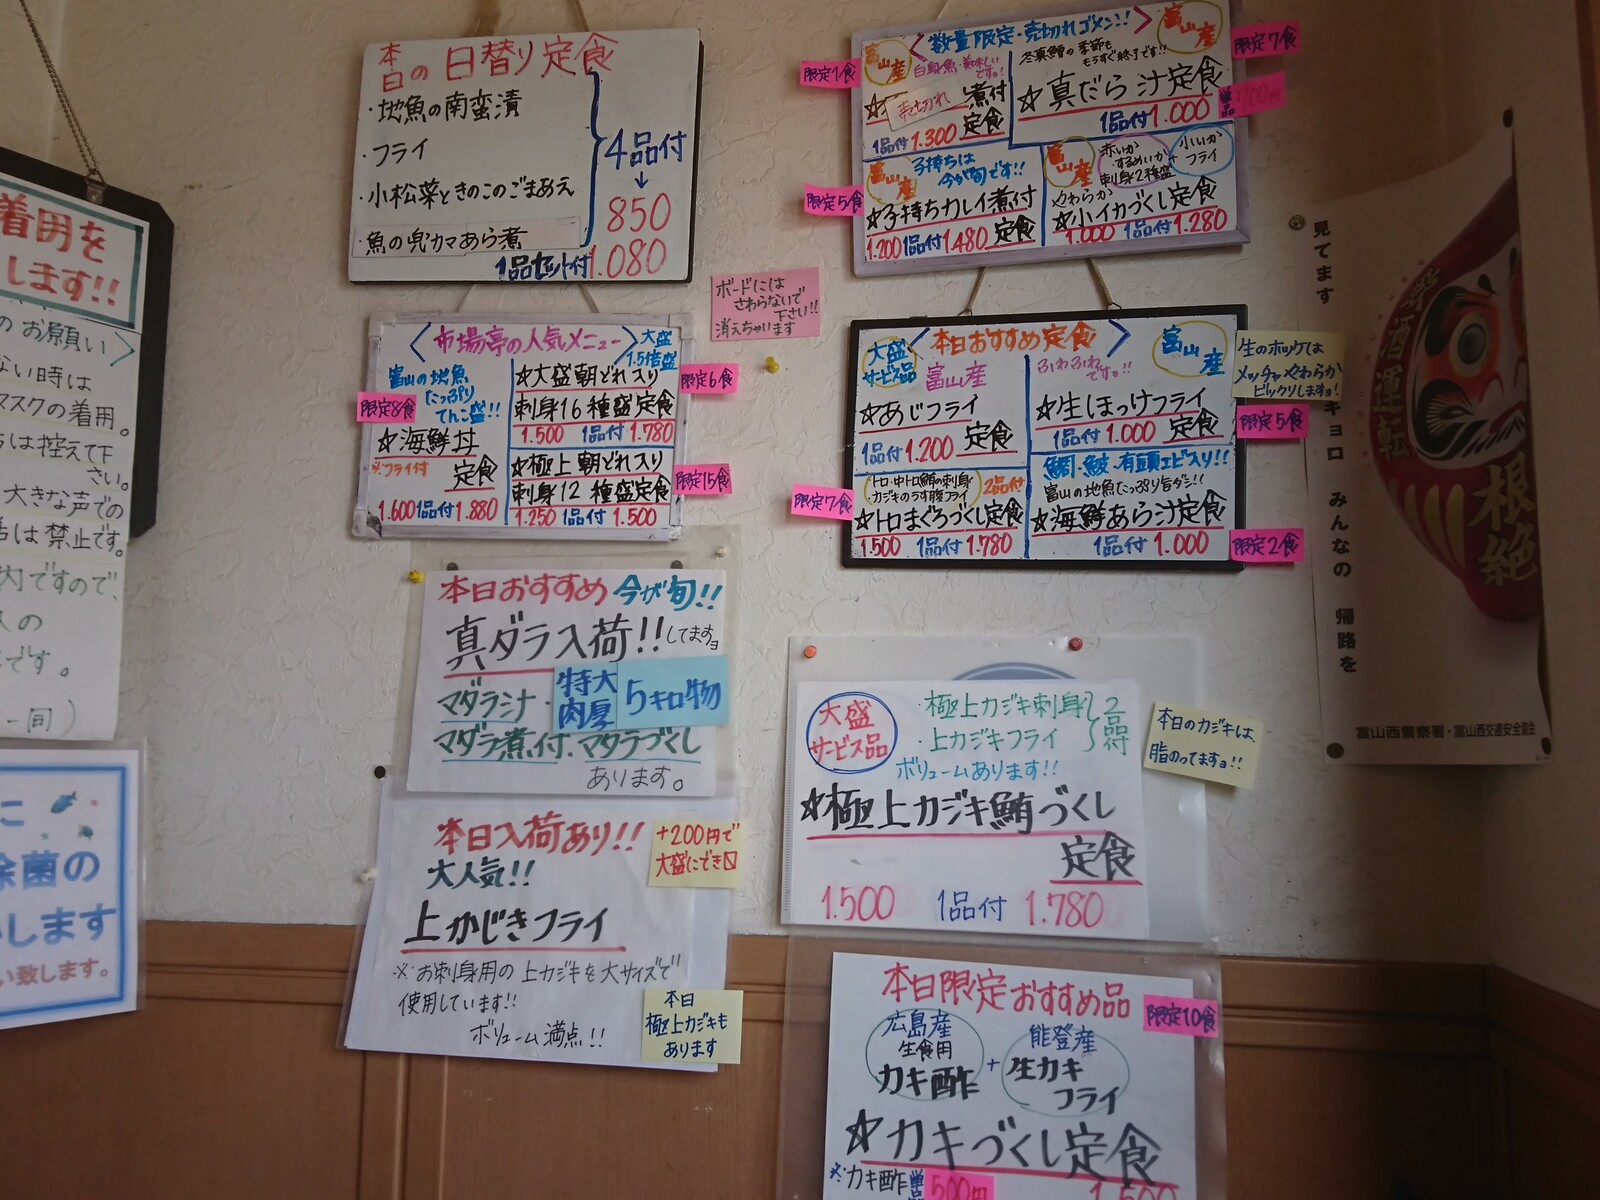 本日の日替り定食
・地魚の南蛮漬
・フライ
・小松菜ときのこのごまあえ
・魚の兜カマあら煮
4品付
850
1品セット付1.080
数量限定・売切れゴメン!!
富山産
富山産
限定1食
白身魚、美味しいです。!
売切れ
煮付
定食
1品付1.300
限定7食
冬真鱈の季節も
もうすぐ終了です!!
☆真だら汁定食
1品付1.000
単品
限定5食
富山産
子持ちは
今が旬です!!
☆子持ちカレイ煮付
定食
1.200 1品付1.480
富山産
赤いか
するめいか
刺身2種盛
+
小いか
フライ
やわらか
☆小イカづくし定食
1.000 1品付1.280
ボードには
さわらないで
下さい!!
消えちゃいます
市場亭の人気メニュー
大盛
1.5倍盛
富山の地魚
たっぷり
てんこ盛!!
限定8食
☆海鮮丼
※フライ付
定食
1.600 1品付1.880
☆大盛朝どれ入り
刺身16種盛定食
1.500 1品付1.780
限定6食
☆極上朝どれ入り
刺身12種盛定食
1.250 1品付1.500
限定15食
本日おすすめ定食
大盛
サービス品
富山産
☆あじフライ
定食
1品付1.200
ふわふわ
です。!!
富山産
☆生ほっけフライ
定食
1品付1.000
生のホッケは
メッチャやわらか
ビックリしますョ!
限定5食
限定7食
トロ・中トロ鮪の刺身
カジキのうす腹フライ
2品付
☆トロまぐろづくし定食
1.500 1品付1.780
鯛・鮍・有頭エビ入り!!
富山の地魚たっぷり旨ダシ!!
☆海鮮あら汁定食
1品付1.000
限定2食
本日おすすめ 今が旬!!
真ダラ入荷!!してますョ
マダラシナ・
特大
肉厚
5キロ物
マダラ煮付・マダラづくし
あります。
本日入荷あり!!
大人気!!
+200円で
大盛にでき
上かじきフライ
※お刺身用の上カジキを大サイズで
使用しています!!
ボリューム満点!!
本日
極上カジキも
あります
大盛
サービス品
・極上カジキ刺身
・上カジキフライ
2品付
ボリュームあります!!
☆極上カジキ鮪づくし
定食
1.500 1品付 1.780
本日のカジキは、
脂のってますョ!!
本日限定おすすめ品
限定10食
広島産
生食用
カキ酢
+
能登産
生カキ
フライ
☆カキづくし定食
※カキ酢単品
500円
1.500
着用を
します!!
のお願い
ない時は
マスクの着用。
は控えて下
さい。
大きな声での
は禁止です。
内ですので、
人の
です。
一同)
に
除菌の
します
い致します。
見てます
キョロ
みんなの
帰路を
飲酒運転
根絶
富山西警察署・富山西交通安全協会